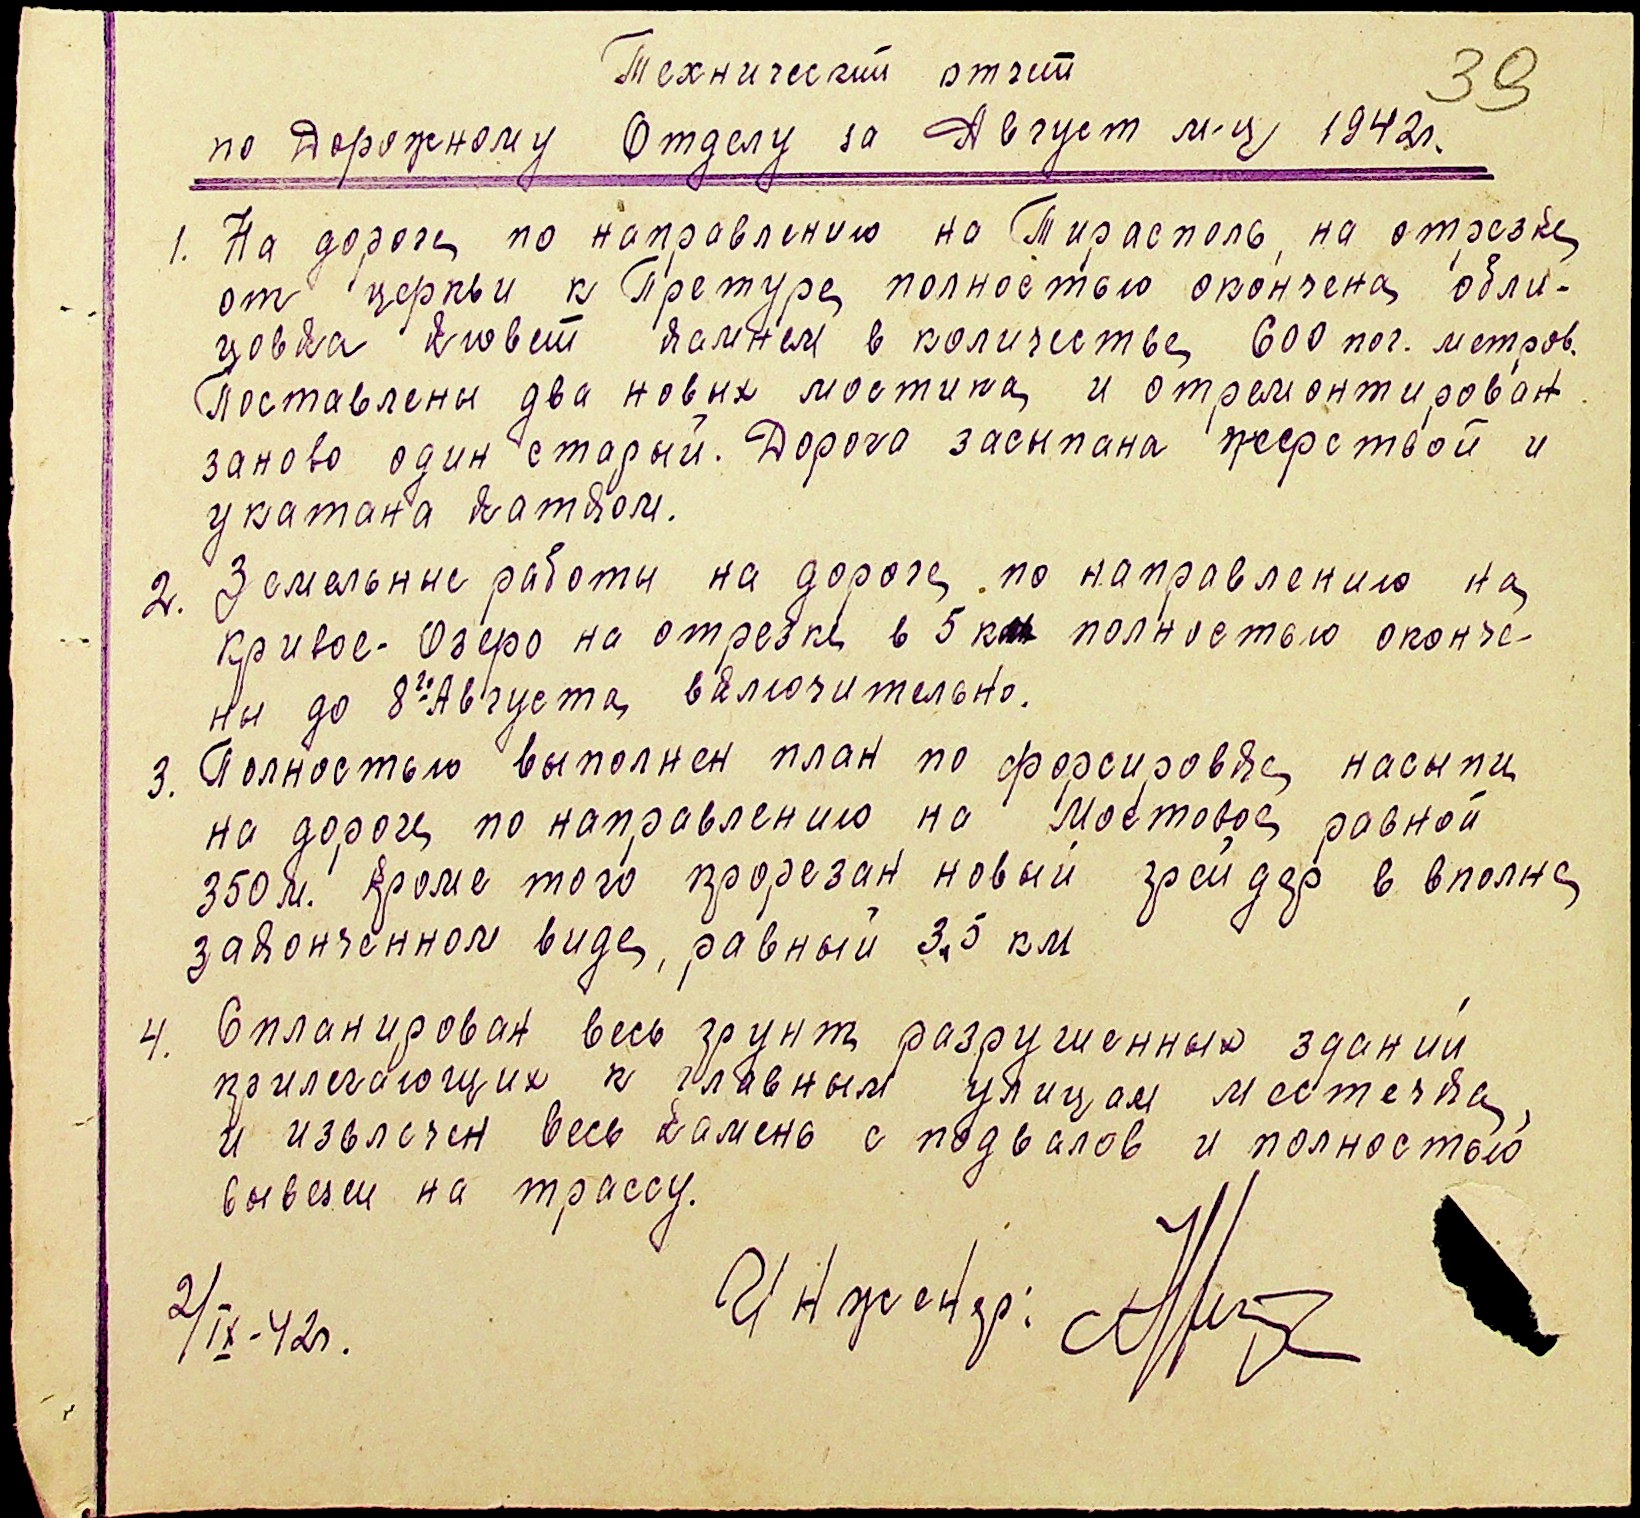 39
Технический отчет
по Дорожному Отделу за Август м-ц 1942г.
1. На дороге по направлению на Тирасполь, на отрезке
от церкви к Претуре полностью окончена обли-
цовка кювет камнем в количестве 600 пог. метров.
Поставлены два новых мостика и отремонтирован
заново один старый. Дорога засыпана жерствой и
укатана катком.
2. Земельные работы на дороге по направлению на
Кривое-Озеро на отрезке в 5 км полностью оконче-
ны до 8го Августа включительно.
3. Полностью выполнен план по форсировке насыпи
на дороге по направлению на Мостовое равной
350 м. Кроме того прорезан новый грейдер в вполне
законченном виде, равный 3,5 км
4. Спланирован весь грунт разрушенных зданий
прилегающих к главным улицам местечка,
и извлечен весь камень с подвалов и полностью
вывезен на трассу.
2/IX-42г.
Инженер: